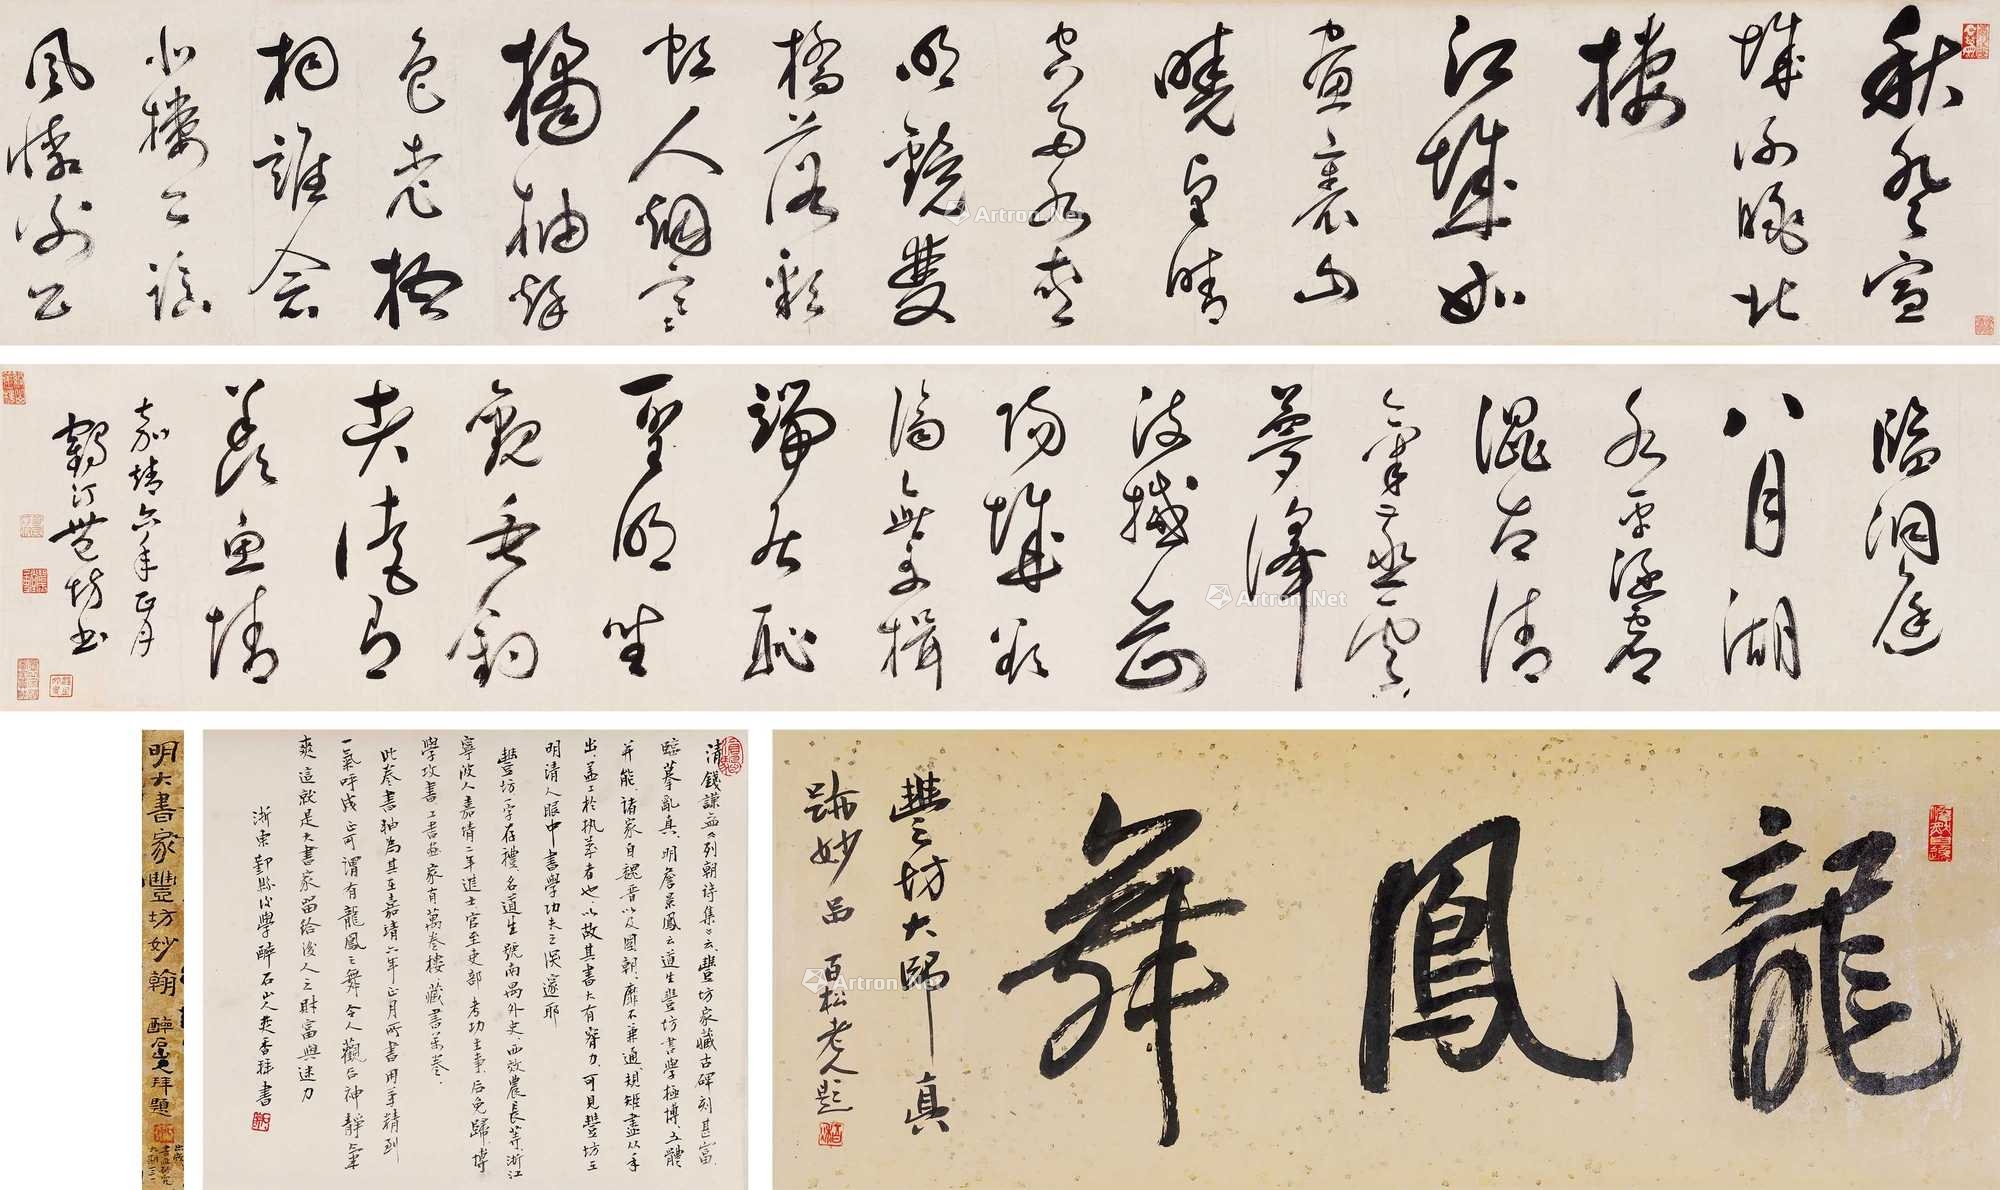 秋登宣
城謝眺北
樓
江城如
畫裏山
曉望晴
空雨水夾
明鏡雙
橋落彩
虹人烟寒
橘柚餘
色老梧
桐誰念
北樓上臨
風懷謝公
臨洞庭
八月湖
水平涵虛
混太清
氣蒸雲
夢澤
波撼岳
陽城欲
濟無舟楫
端居恥
聖明坐
觀垂釣
者徒有
羨魚情
嘉靖六年正月
鶴汀豐坊書
龍鳳舞
豐坊大師真
跡妙品 百松老人題
清錢謙益《列朝詩集》云豐坊家藏古碑刻甚富
臨摹亂真、明詹景鳳云道生豐坊書學極博、五體
并能、諸家自魏晉以及國朝、靡不兼通、規矩盡從手
出、盖工於執筆者也、以故其書大有腕力、可見豐坊在
明清人眼中書學功夫之深邃耶
豐坊、字存禮、名道生號南禺外史、西效農長等、浙江
寧波人嘉靖二年進士、官至吏部考功主事、后免歸、博
學攻書工書畫家有萬卷樓藏書萬卷、
此卷書軸為其在嘉靖六年正月所書用筆精到
一氣呼成正可謂有龍鳳之舞令人觀后神靜氣
爽這就是大書家留給後人之財富與迷力
浙東鄞縣後學醉石山人 拜書
明大書家豐坊妙翰 醉石山人拜題
Artron.Net
Artron.Net
Artron.Net
Artron.Net